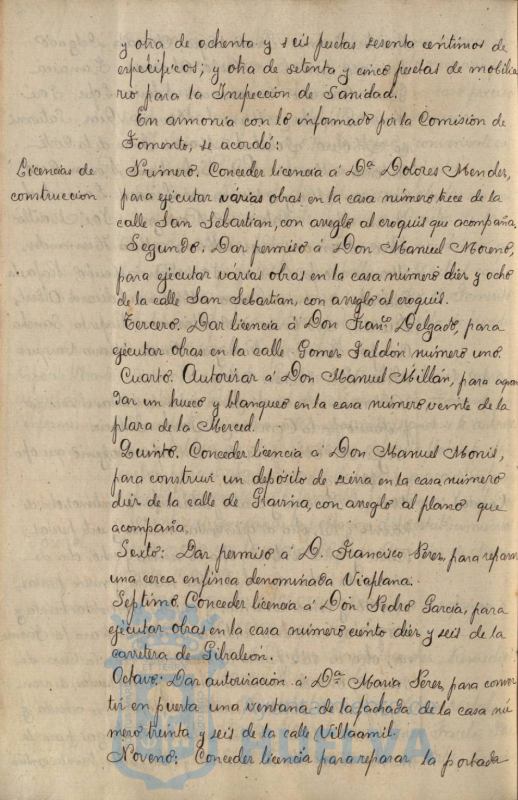 y otra de ochenta y seis pesetas sesenta centimos de
especificos; y otra de setenta y cinco pesetas de mobilia
rio para la Inspección de Sanidad.
En armonia con lo informado por la Comisión de
Fomento, se acordó:
Licencias de
construccion
Primero. Conceder licencia á Dª Dolores Mendez,
para ejecutar várias obras en la casa número trece de la
calle San Sebastian, con arreglo al croquis que acompaña.
Segundo. Dar permiso á Don Manuel Moreno,
para ejecutar várias obras en la casa número diez y ocho
de la calle San Sebastian, con arreglo al croquis.
Tercero. Dar licencia á Don Franco Delgado, para
ejecutar obras en la calle Gomez Jaldón número uno.
Cuarto. Autorizar á Don Manuel Millán, para agran
dar un hueco y blanqueo en la casa número veinte de la
plaza de la Merced.
Quinto. Conceder licencia á Don Manuel Monis,
para construir un depósito de en la casa número
diez de la calle de Gravina, con arreglo al plano que
acompaña.
Sexto: Dar permiso á D. Francisco Perez, para reparar
una cerca en finca denominada Viaplana.
Septimo. Conceder licencia á Don Pedro García, para
ejecutar obras en la casa número ciento diez y seis de la
carretera de Gibraleón.
Octavo: Dar autorización á Dª María Perez, para conver
tir en puerta una ventana de la fachada de la casa nú
mero treinta y seis de la calle Villaamil.
Noveno: Conceder licencia para reparar la portada
HUELVA